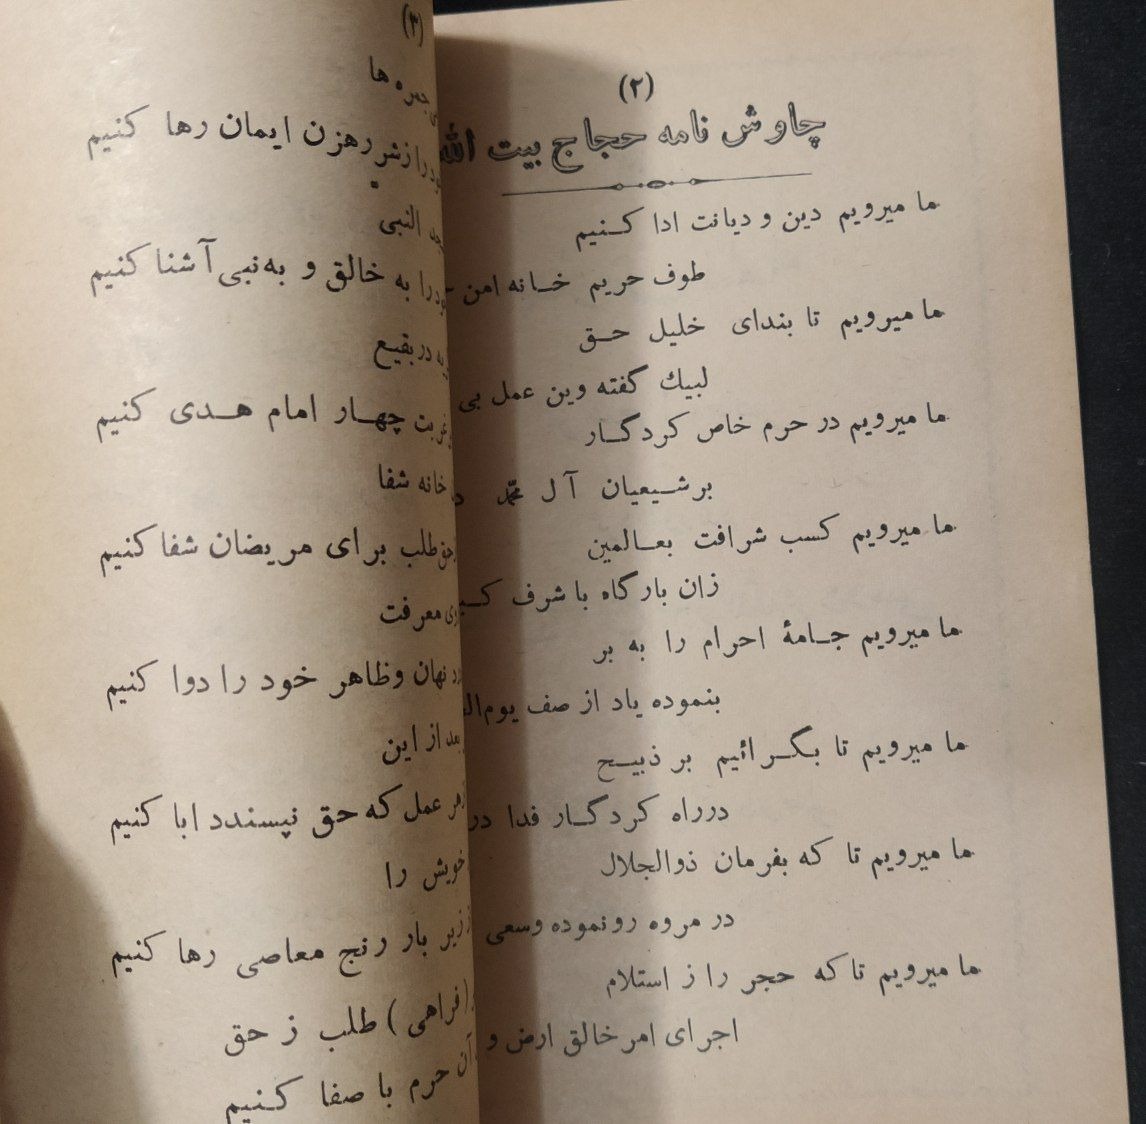 (۲)
چاوش نامه حجاج بیت الله
ما میرویم دین و دیانت ادا کنیم
طوف حریم خانه امن
ما میرویم تا بندای خلیل حق
لبیك گفته وین عمل بی
ما میرویم در حرم خاص کردگار
بر شیعیان آل محمد
ما میرویم کسب شرافت بعالمین
زان بارگاه با شرف
ما میرویم جامهٔ احرام را به بر
بنموده یاد از صف
ما میرویم تا بگرائیم بر ذبیح
درراه کردگار فدا در
ما میرویم تا که بفرمان ذوالجلال
در مروه رو نموده وسعی
ما میرویم تا که حجر را ز استلام
اجرای امر خالق ارض و
(۳)
ها
را ز شر رهزن ایمان رها کنیم
النبی
را به خالق و به نبی آشنا کنیم
در بقیع
غربت چهار امام هدی کنیم
خانه شفا
حق طلب برای مریضان شفا کنیم
معرفت
نهان وظاهر خود را دوا کنیم
از این
هر عمل که حق نپسندد ابا کنیم
خویش را
زیر بار رنج معاصی رها کنیم
(فراهی) طلب ز حق
آن حرم با صفا کنیم